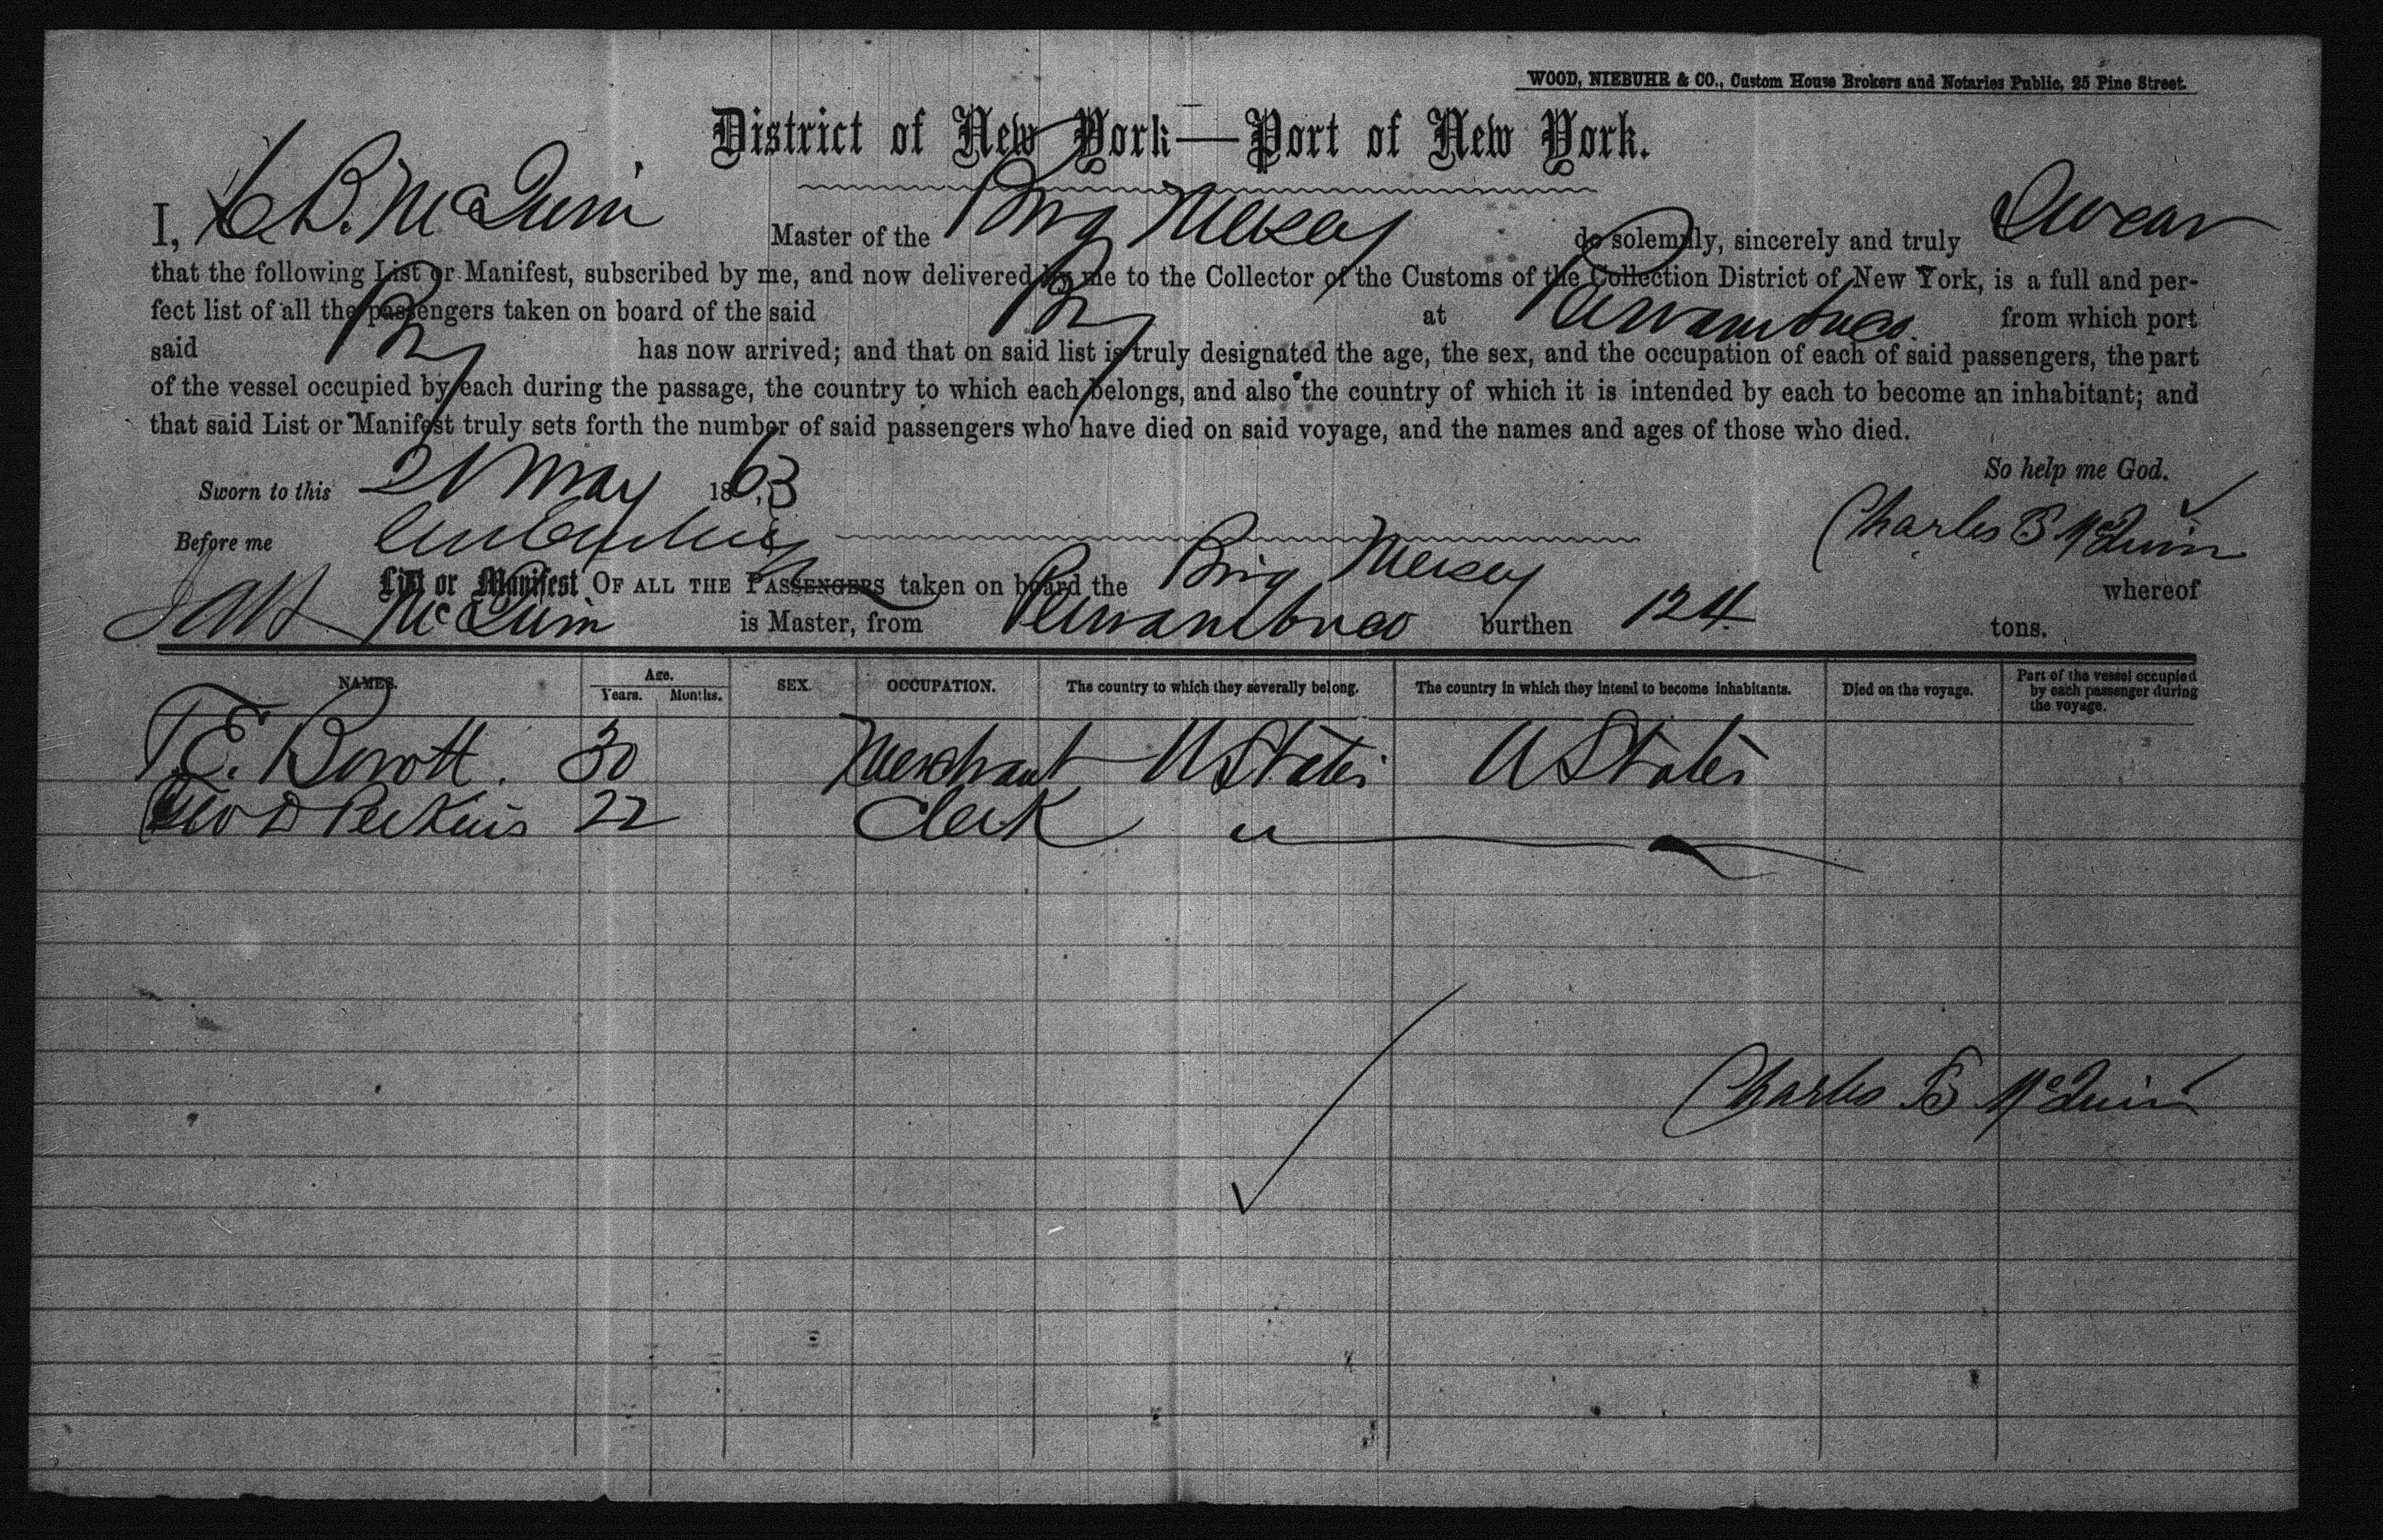 WOOD, NIEBUHR & CO., Custom House Brokers and Notaries Public, 25 Pine Street.
District of New York—Port of New York.
I, C B. McQuinn Master of the Brig Mersey do solemnly, sincerely and truly Swear
that the following List or Manifest, subscribed by me, and now delivered by me to the Collector of the Customs of the Collection District of New York, is a full and per-
fect list of all the passengers taken on board of the said Brig at Pernambuco. from which port
said Brig has now arrived; and that on said list is truly designated the age, the sex, and the occupation of each of said passengers, the part
of the vessel occupied by each during the passage, the country to which each belongs, and also the country of which it is intended by each to become an inhabitant; and
that said List or Manifest truly sets forth the number of said passengers who have died on said voyage, and the names and ages of those who died.
So help me God.
Sworn to this 21 May 1863
Before me
Charles B McQuinn
List or Manifest OF ALL THE PASSENGERS taken on board the Brig Mersey whereof
McQuinn is Master, from Pernambuco burthen 124 tons.
NAMES. Age. Years. Months. SEX. OCCUPATION. The country to which they severally belong. The country in which they intend to become inhabitants. Died on the voyage. Part of the vessel occupied by each passenger during the voyage.
T. E. 30 Merchant U States U States
Geo D Perkins 22 Clerk "
Charles B McQuinn